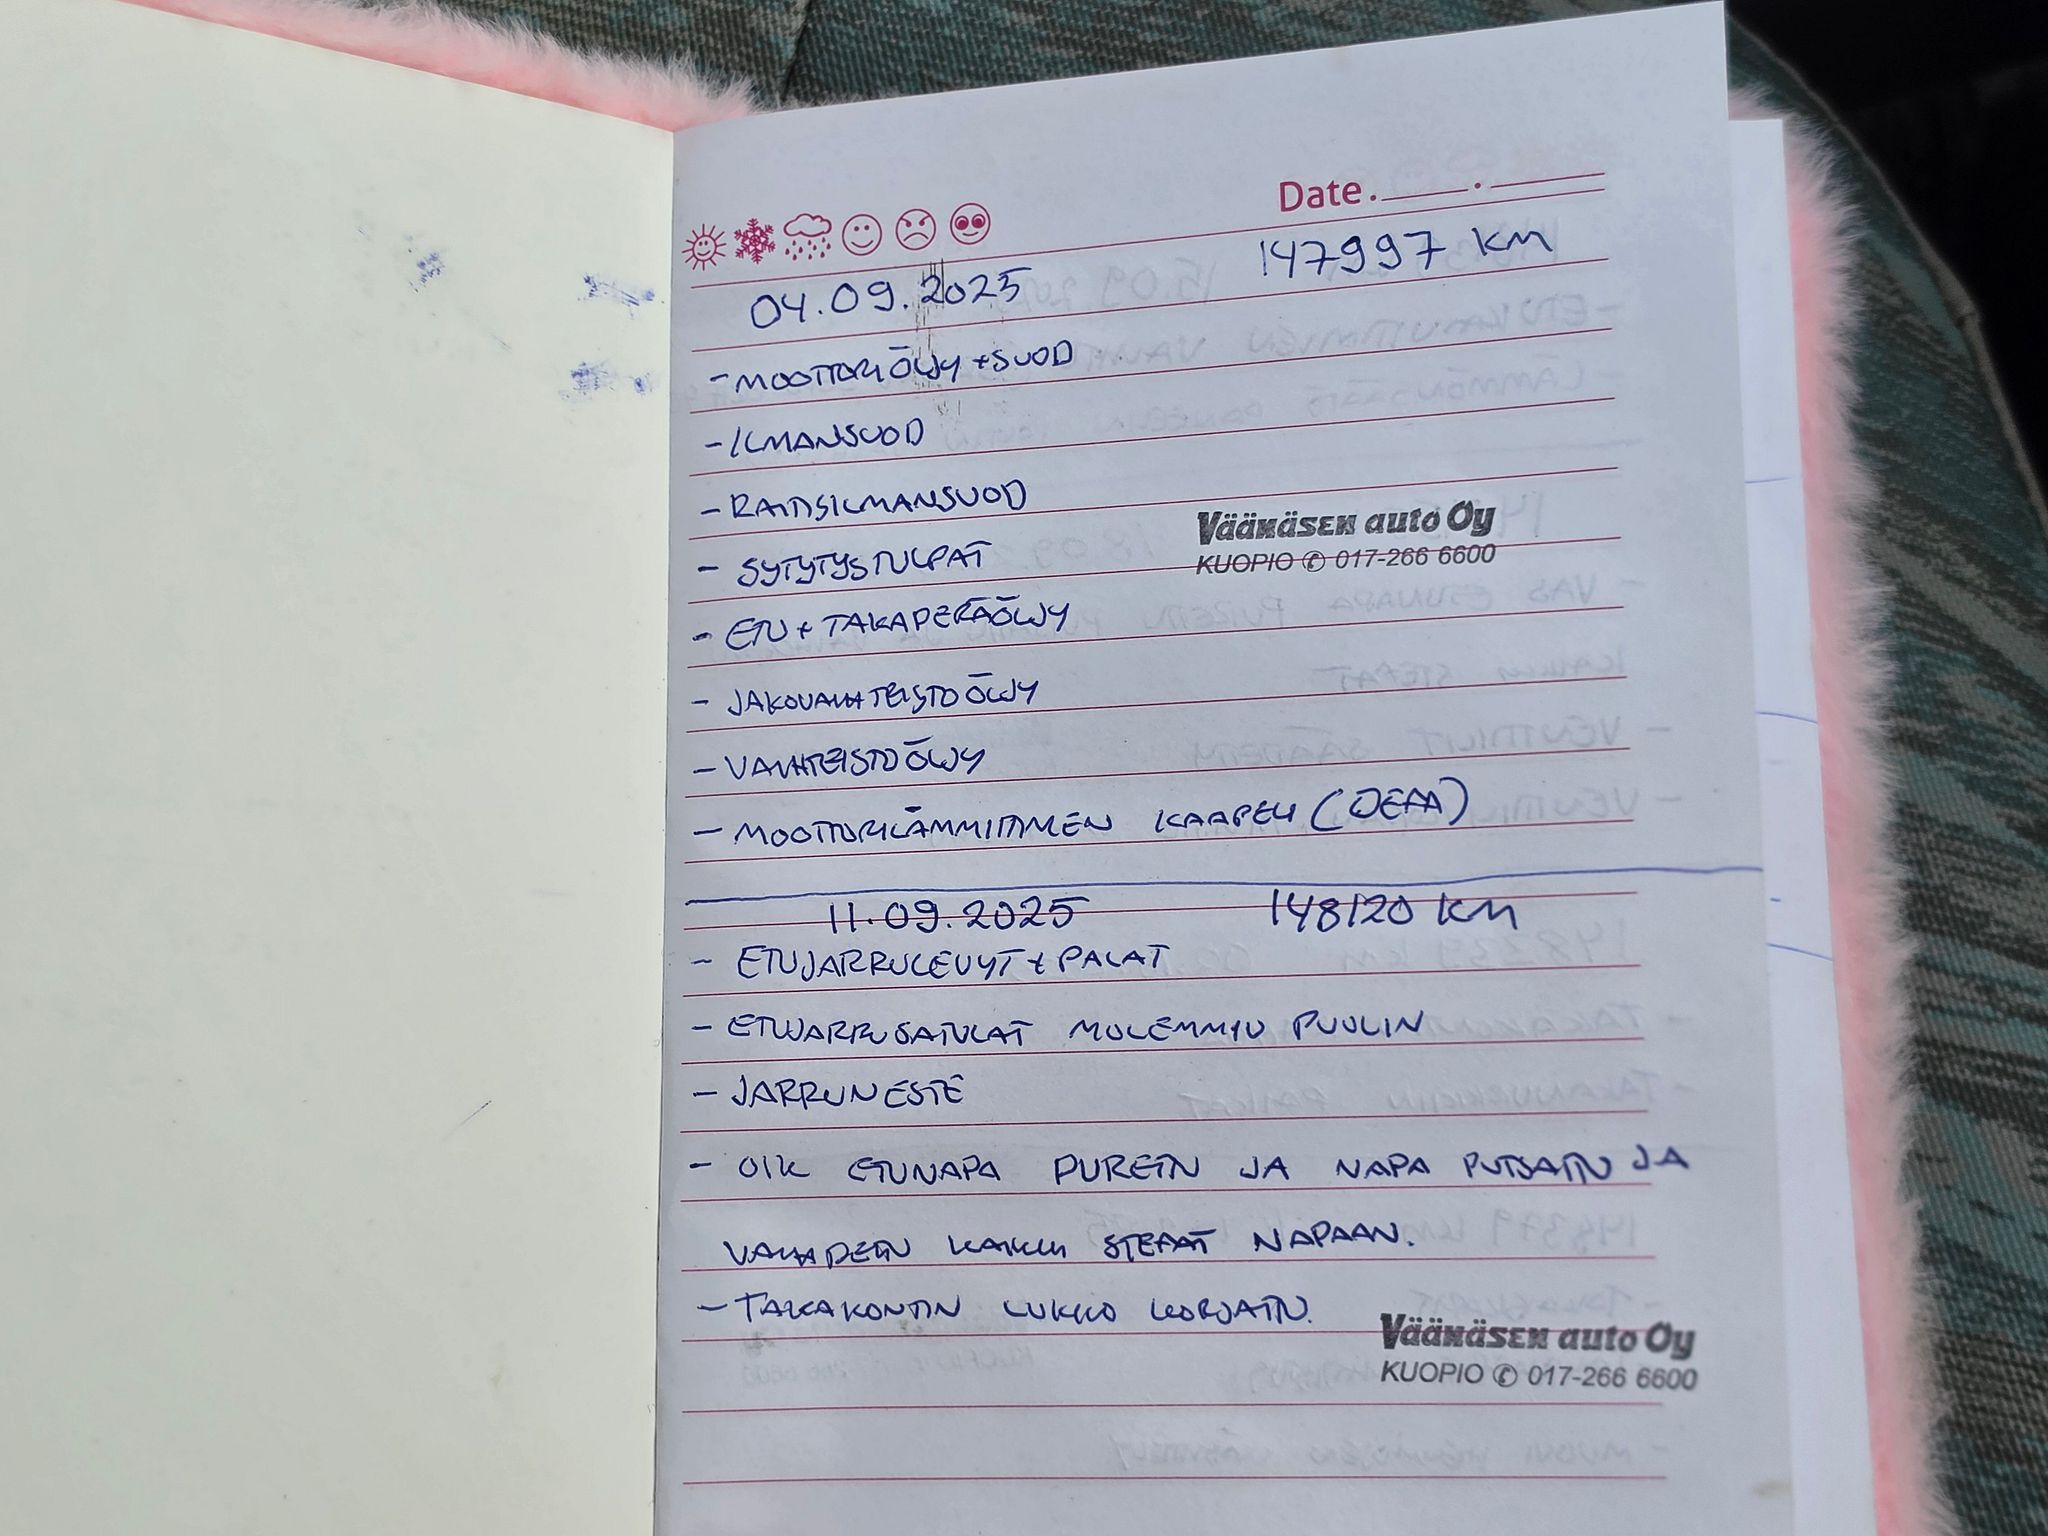 Date.
147997 KM
04.09.2025
- MOOTTORIÖLJY + SUOD
- ILMANSUOD
- RAITISILMANSUOD
Väänäsen auto Oy
KUOPIO ✆ 017-266 6600
- SYTYTYSTULPAT
- ETU + TAKAPERÄÖLJY
- JAKOVAIHTEISTOÖLJY
- VAIHTEISTOÖLJY
- MOOTTORILÄMMITTIMEN KAAPELI (DEFA)
11.09.2025 148120 KM
- ETUJARRULEVYT + PALAT
- ETUJARRUSATULAT MOLEMMIN PUOLIN
- JARRUNESTE
- OIK ETUNAPA PURETTU JA NAPA PUTSATTU JA
VAIHDETTU KAIKKI STEFAT NAPAAN.
- TAKAKONTIN LUKKO KORJATTU.
Väänäsen auto Oy
KUOPIO ✆ 017-266 6600